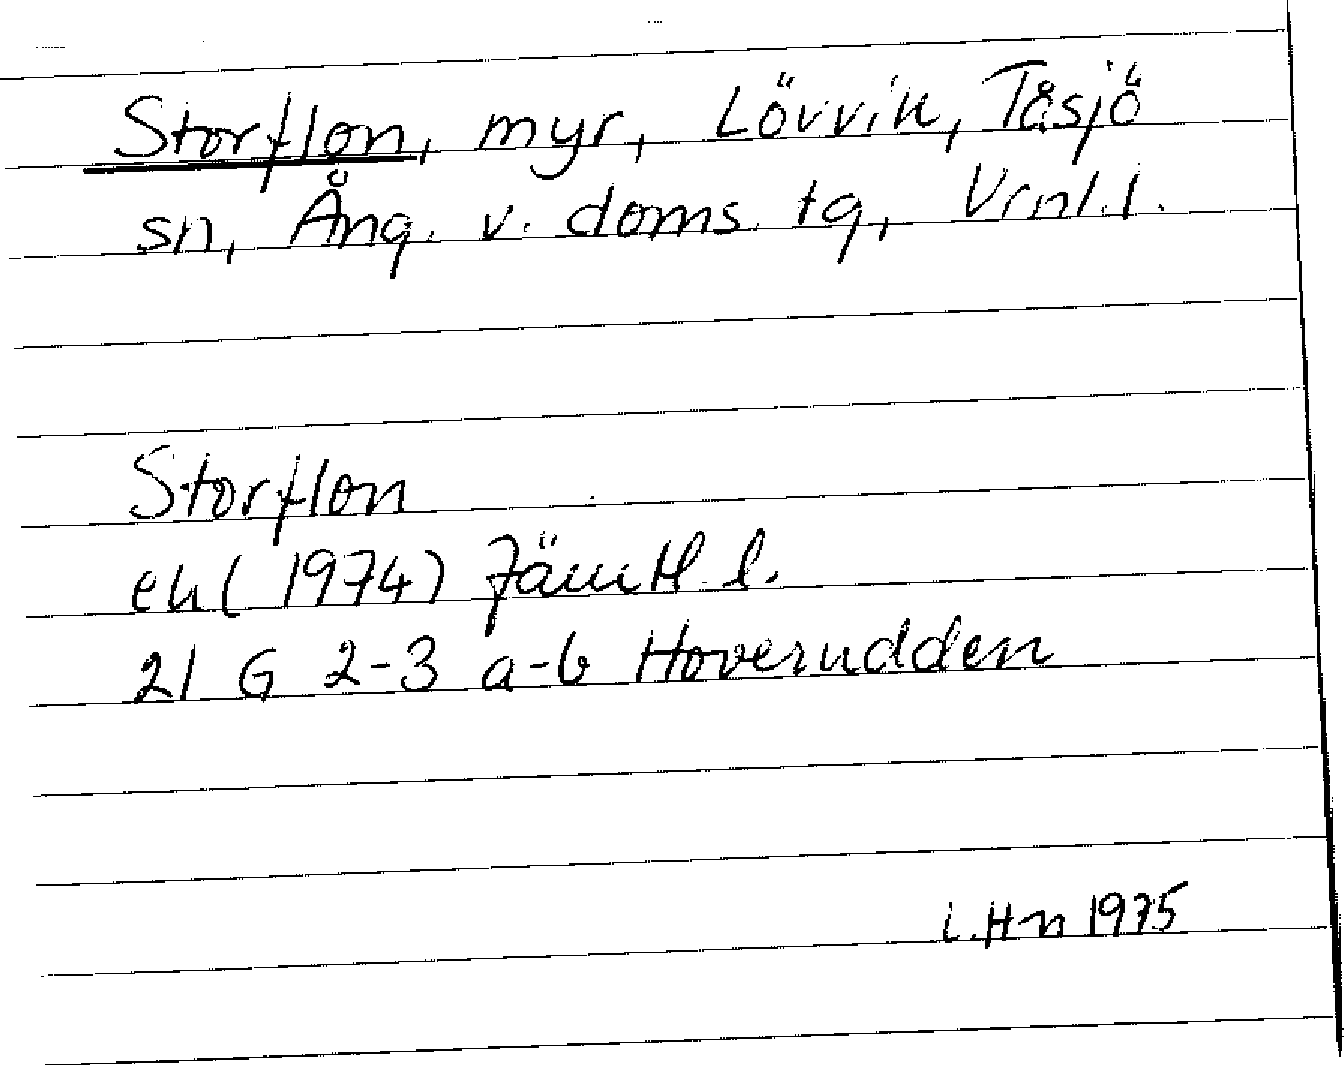 Storflon, myr, Lövvik, Tåsjö
sn, Ång. v. doms. tg, Vrnl. l.
Storflon
ek (1974) Jämtl. l.
21 G 2-3 a-b Hoverudden
L. Hn 1975